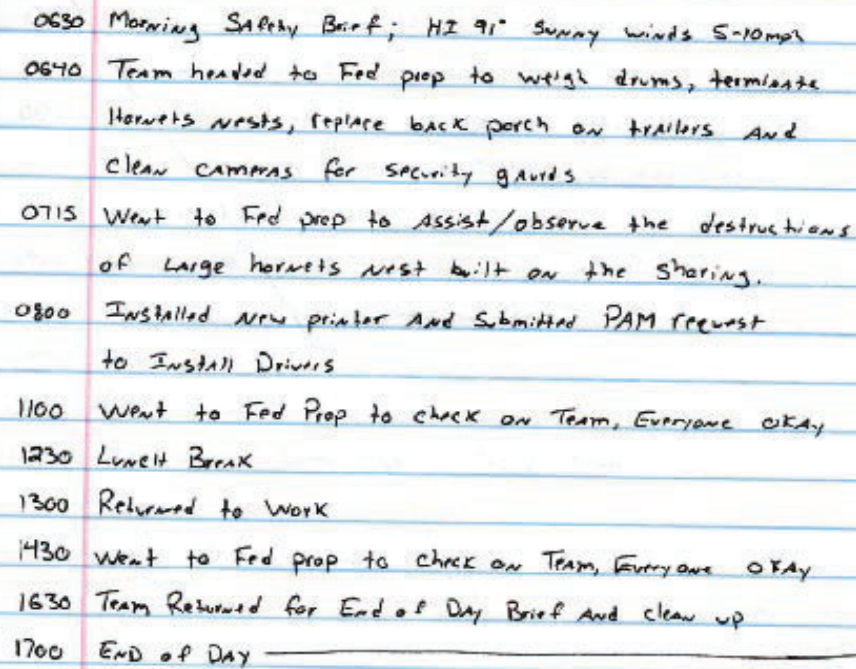 0630 Morning Safety Brief; HI 91° Sunny winds 5-10mph
0640 Team headed to Fed prop to weigh drums, terminate
Hornets nests, replace back porch on trailers And
clean cameras for security gaurds
0715 Went to Fed prop to Assist/observe the destructions
of Large hornets nest built on the Shoring.
0800 Installed New printer And Submitted PAM request
to Install Drivers
1100 Went to Fed Prop to check on Team, Everyone okay
1230 Lunch Break
1300 Returned to Work
1430 Went to Fed prop to check on Team, Everyone okay
1630 Team Returned for End of Day Brief And clean up
1700 END of DAY